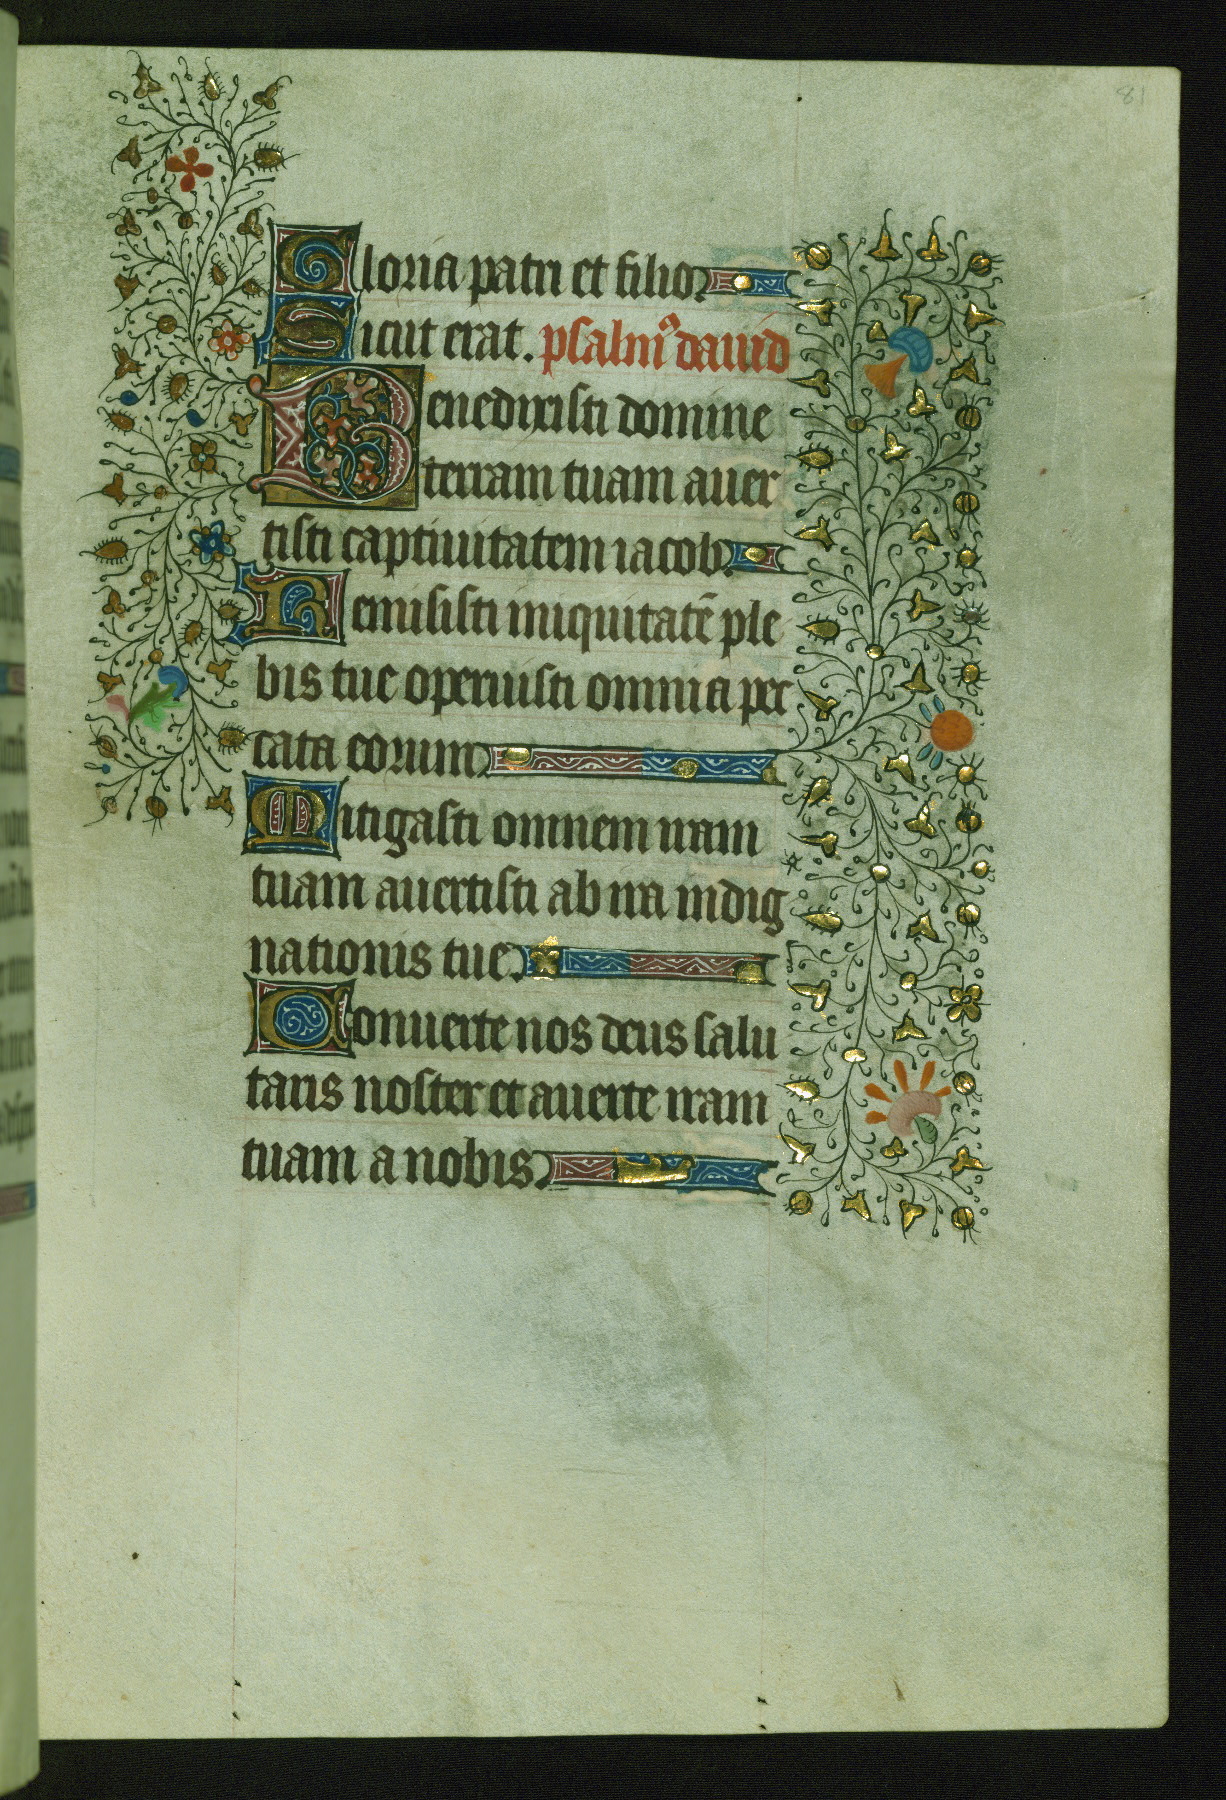 81
Gloria patri et filio.
Sicut erat. psalmꝰ dauid
Benedixisti domine
terram tuam auer
tisti captiuitatem iacob.
Remisisti iniquitatē ple
bis tue operuisti omnia pec
cata eorum
Mitigasti omnem iram
tuam auertisti ab ira indig
nationis tue.
Conuerte nos deus salu
taris noster et auerte iram
tuam a nobis